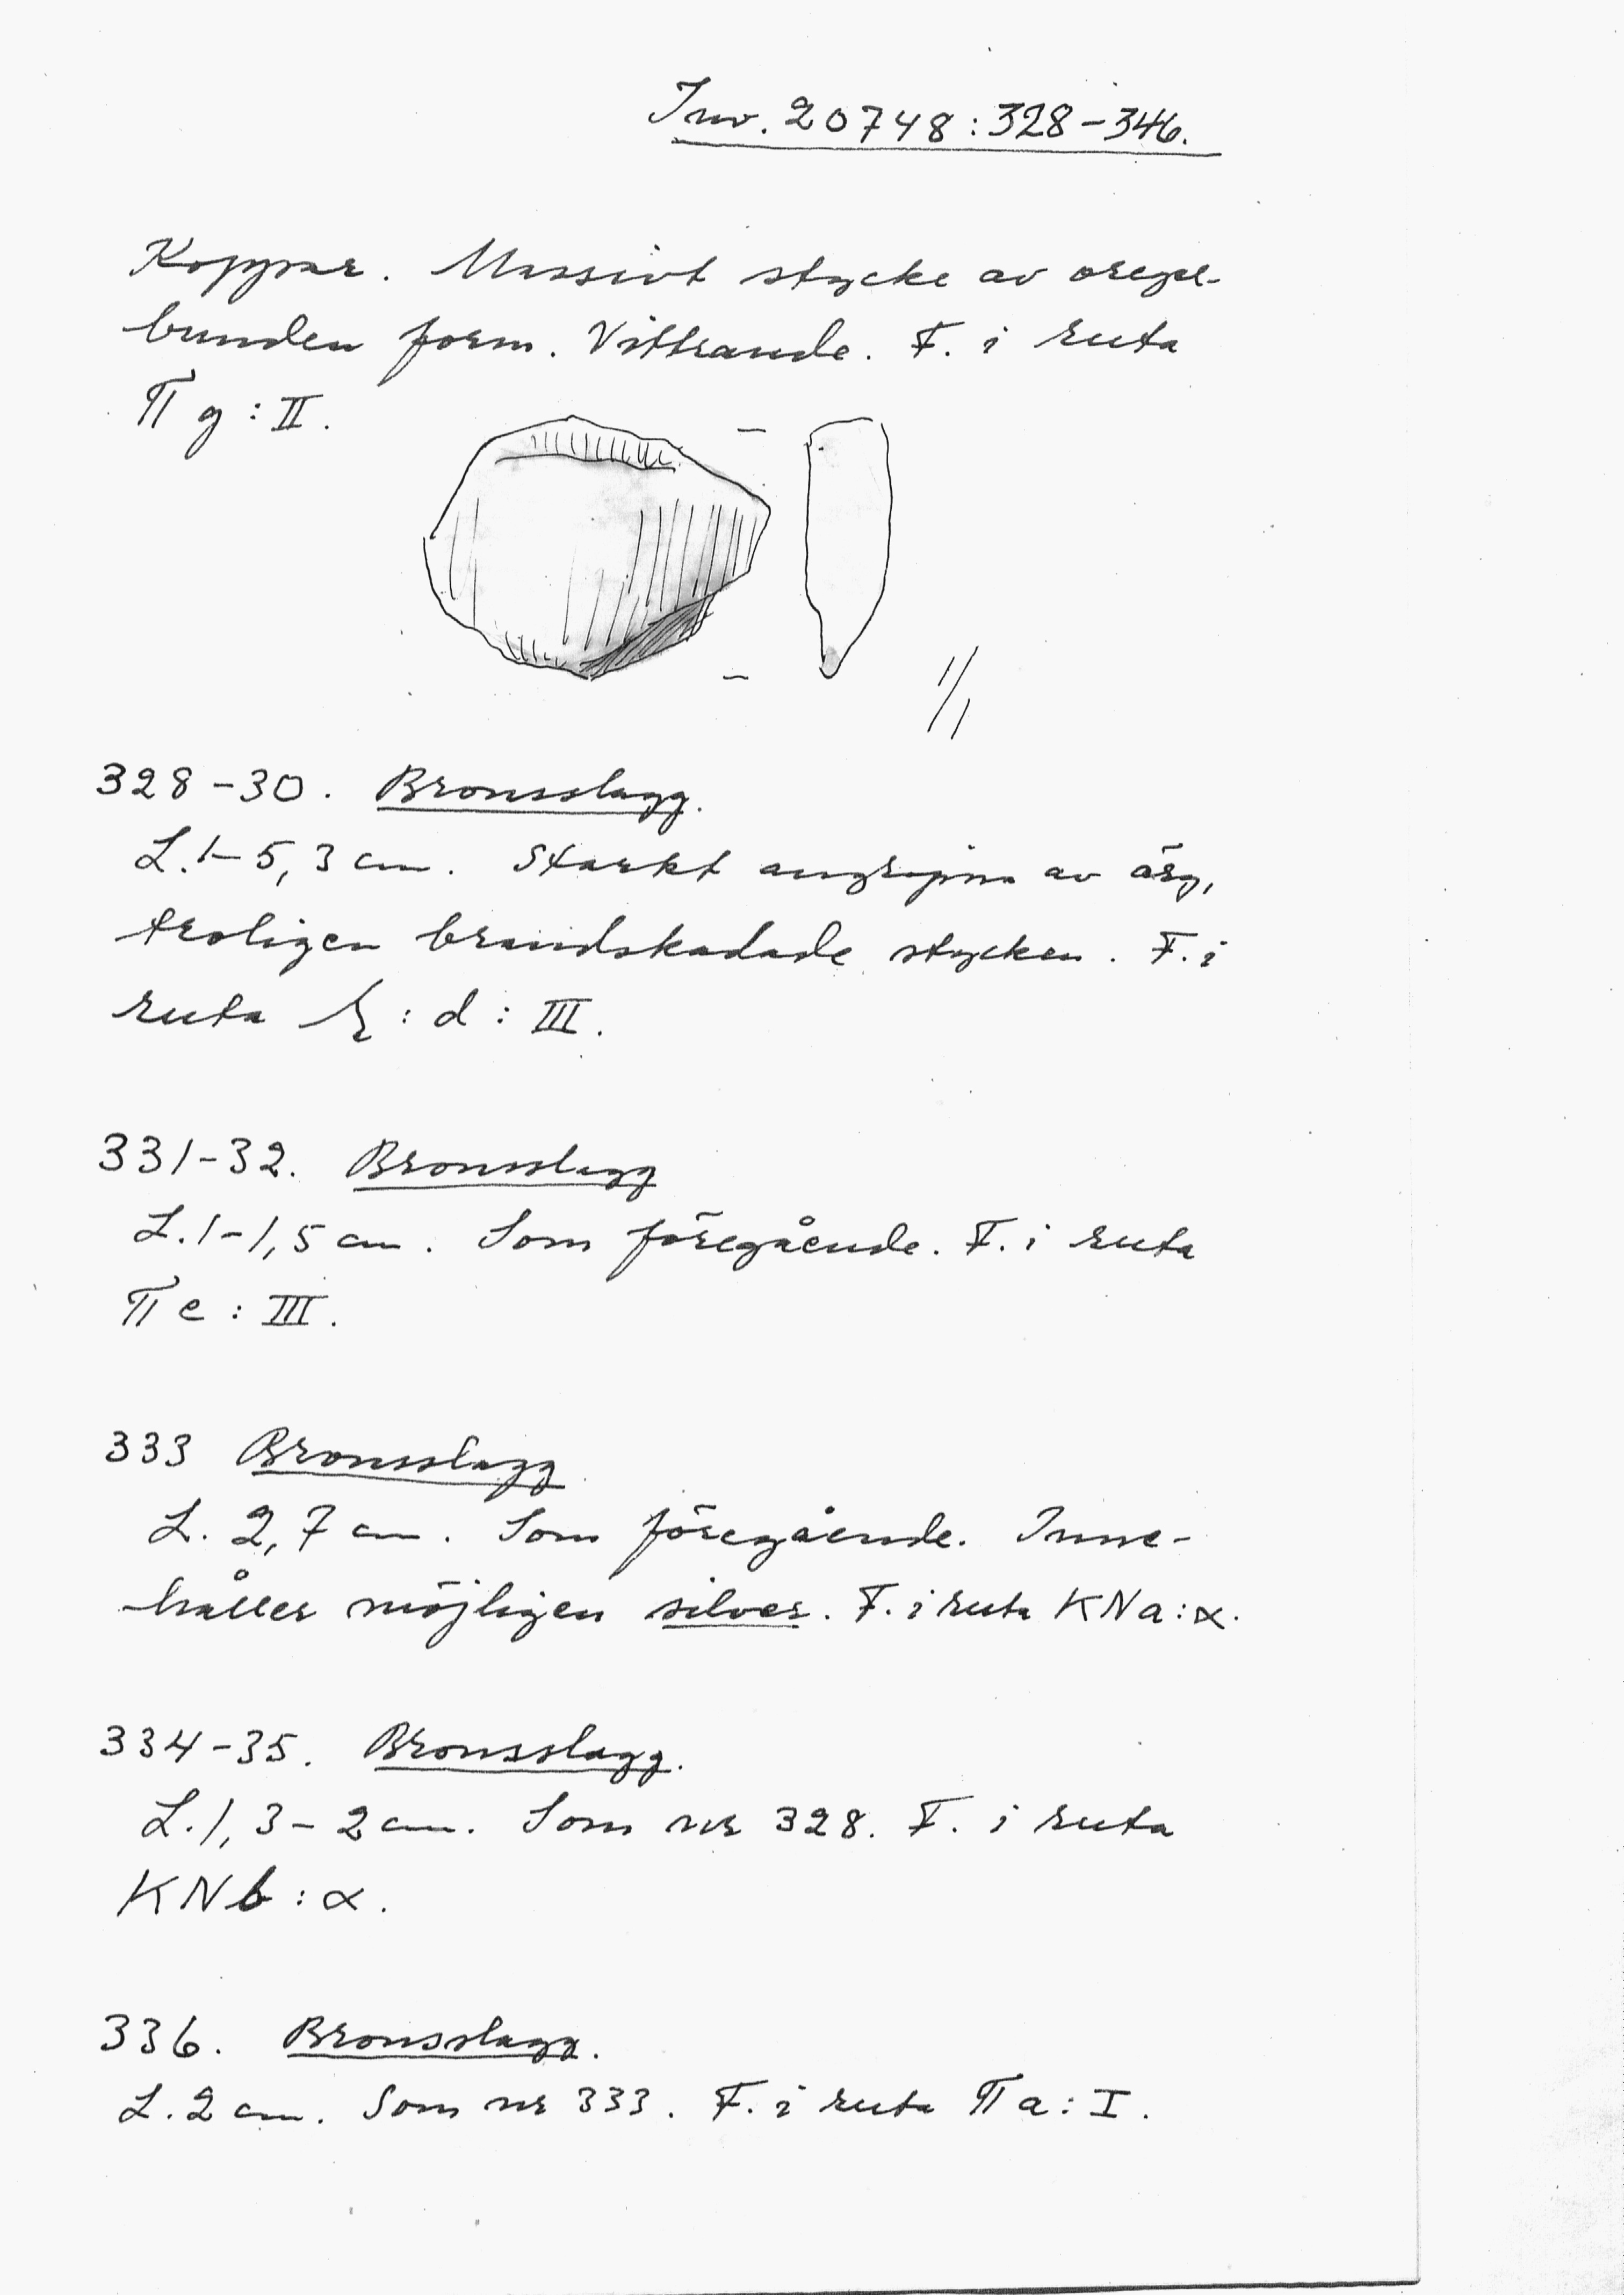 Inv. 20748:328-346.
Koppar. Massivt stycke av oregel-
bunden form. Vittrande. F. i ruta
Π g : II.
1/1
328-30. Bronsslagg.
L. 1-5,3 cm. Starkt angripna av ärg,
troligen brandskadade stycken. F. i
ruta : d : III.
331-32. Bronsslagg
L. 1-1,5 cm. Som föregående. F. i ruta
Π e : III.
333 Bronsslagg
L. 2,7 cm. Som föregående. Inne-
håller möjligen silver. F. i ruta KNa:α.
334-35. Bronsslagg.
L. 1,3-2 cm. Som nr 328. F. i ruta
KNb : α.
336. Bronsslagg.
L. 2 cm. Som nr 333. F. i ruta Π a : I.